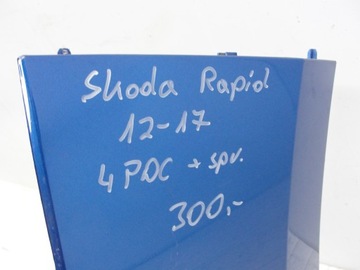 Skoda Rapid
12-17
4 PDC + spr.
300,-